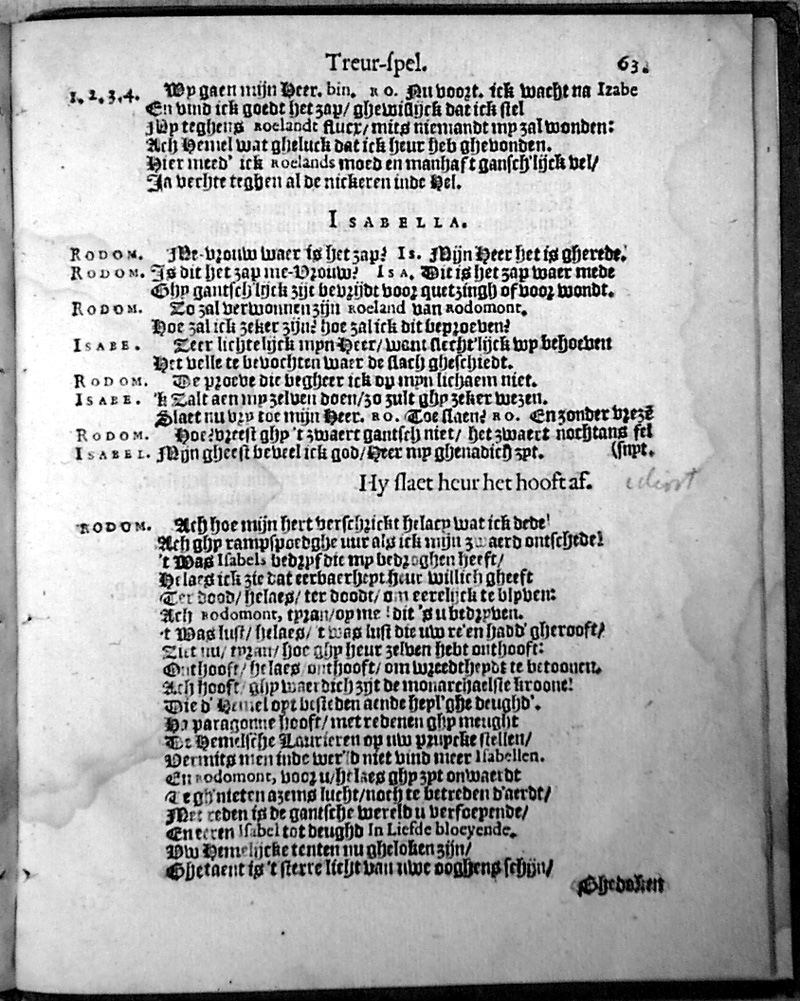 Treur-spel. 63.
1. 2. 3. 4. Wy gaen mijn Heer. bin. RO. Nu voort. ick wacht na Izabe
En vind ick goedt het zap/ ghewißlijck dat ick stel
My teghens Roelandt flucx/ mits niemandt my zal wonden:
Ach Hemel wat gheluck dat ick heur heb ghevonden.
Hier meed' ick Roelands moed en manhaft gansch'lijck vel/
Ja vechte teghen al de nickeren inde Hel.
ISABELLA.
RODOM. Me-vrouw waer is het zap? IS. Mijn Heer het is gherede.
RODOM. Is dit het zap me-Vrouw? ISA. Dit is het zap waer mede
Ghy gantsch'lijck zijt bevrijdt voor quetzingh of voor wondt.
RODOM. Zo zal verwonnen zijn Roeland van Rodomont.
Hoe zal ick zeker zijn? hoe zal ick dit beproeven?
ISABE. Zeer lichtelijck mijn Heer/ want slecht'lijck wy behoeven
Het velle te bevochten waer de slach gheschiedt.
RODOM. De proeve die begheer ick op mijn lichaem niet.
ISABE. 'k Zalt aen my zelven doen/ zo zult ghy zeker wezen.
Slaet nu vry toe mijn Heer. RO. Toe slaen? RO. En zonder vreze
RODOM. Hoe? vreest ghy 't zwaert gantsch niet/ het zwaert nochtans fel
ISABEL. Mijn gheest beveel ick god/ Heer my ghenadich zyt. (snyt.
Hy slaet heur het hooft af.
RODOM. Ach hoe mijn hert verschrickt helaey wat ick dede!
Ach ghy rampspoedghe uur als ick mijn zwaerd ontschede!
't Was Isabels bedryf die my bedroghen heeft/
Helaes ick zie dat eerbaerheyt heur willich gheeft
Ter dood/ helaes/ ter doodt/ om eerelijck te blyven:
Ach Rodomont, tyran/ o pme! dit 's u bedryven.
't Was lust/ helaes/ 't was lust die uw re'en hadd' gherooft/
Ziet nu/ tyran/ hoe ghy heur zelven hebt onthooft:
Onthooft/ helaes onthooft/ om wreedtheydt te betoonen.
Ach hooft/ ghy waerdich zijt de monarchaelste kroone!
Die d' Hemel oyt besteden aende heyl'ghe deughd'.
Ha paragonne hooft/ met redenen ghy meught
De Hemelsche Laurieren op uw pruycke stellen/
Vermits men inde wer'ld niet vind meer Isabellen.
En Rodomont, voor u/ helaes ghy zyt onwaerdt
Te gh'nieten azems lucht/ noch te betreden d'aerdt/
Met reden is de gantsche wereld u versoeyende/
En eeren Isabel tot deughd In Liefde bloeyende.
Uw Hemelijcke tenten nu gheloken zijn/
Ghetaent is 't sterre licht van uwe ooghens schijn/
Ghedoken